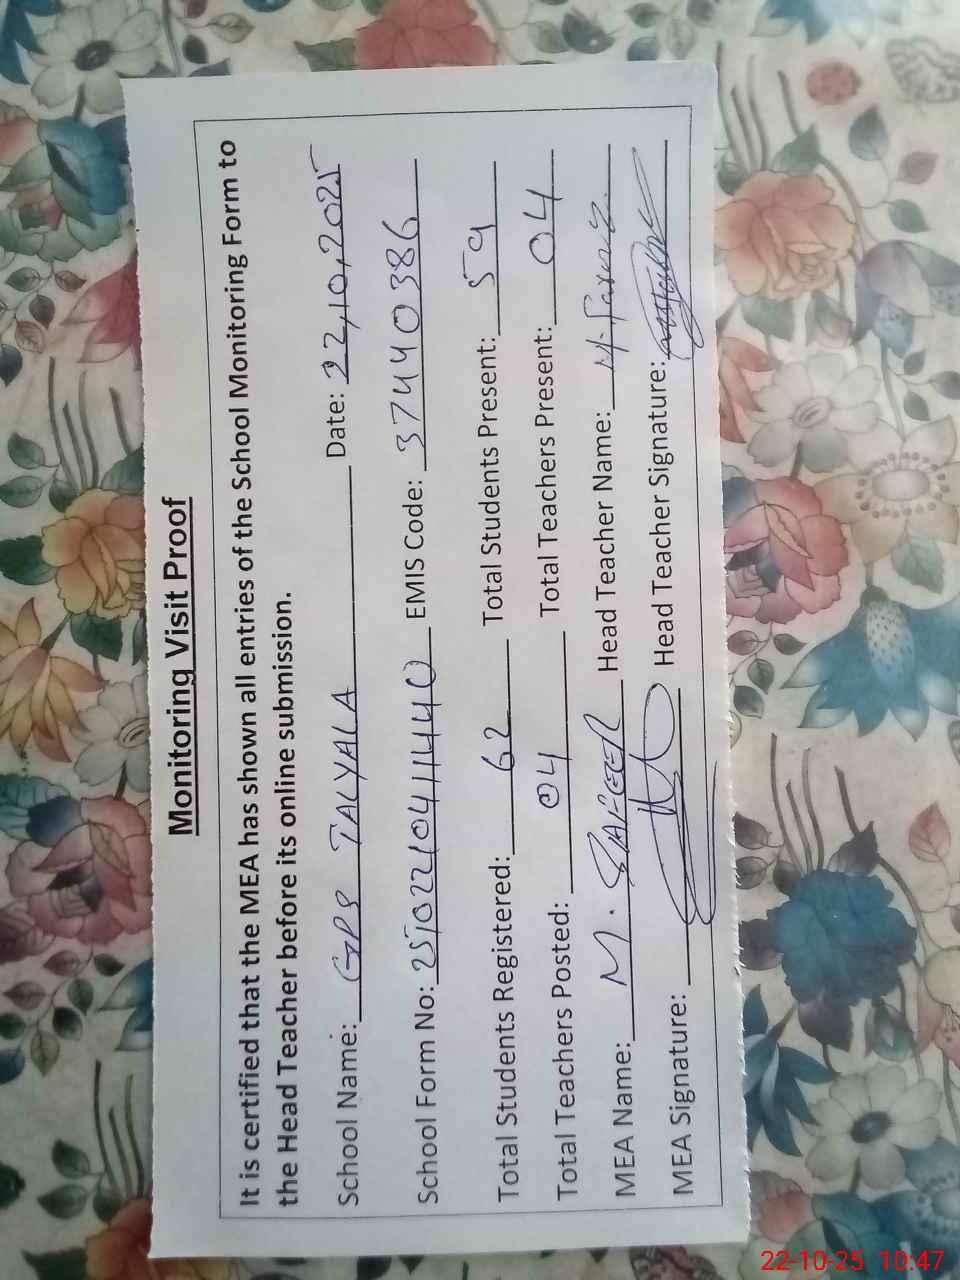 Monitoring Visit Proof
It is certified that the MEA has shown all entries of the School Monitoring Form to
the Head Teacher before its online submission.
School Name: GPS TALYALA Date: 22,10,2025
School Form No: 25102210411440 EMIS Code: 37440386
Total Students Registered: 62 Total Students Present: 59
Total Teachers Posted: 04 Total Teachers Present: 04
MEA Name: M. Head Teacher Name: M.
MEA Signature: Head Teacher Signature:
22-10-25 10:47